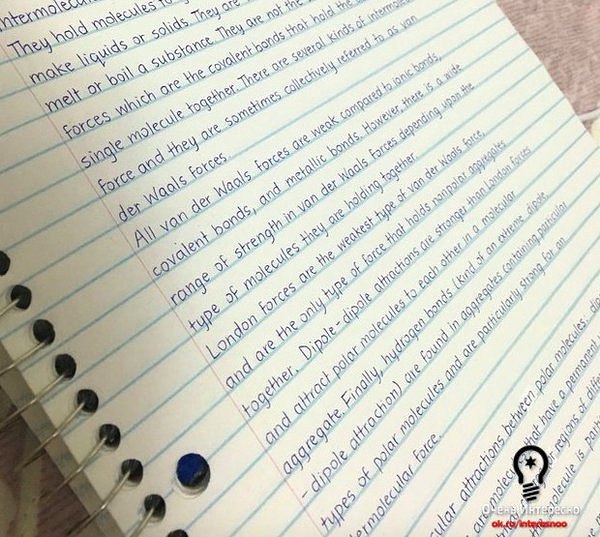 Intermolecul
They hold molecules to
make liquids or solids. They are
melt or boil a substance. They are not the
forces which are the covalent bonds that hold the
single molecule together. There are several kinds of intermolec
force and they are sometimes collectively referred to as van
der Waals forces.
All van der Waals forces are weak compared to ionic bonds,
covalent bonds, and metallic bonds. However, there is a wide
range of strength in van der Waals forces depending upon the
type of molecules they are holding together.
London forces are the weakest type of van der Waals force,
and are the only type of force that holds nonpolar aggregates
together. Dipole-dipole attractions are stronger than London forces
and attract polar molecules to each other in a molecular
aggregate. Finally, hydrogen bonds (kind of an extreme dipole
-dipole attraction) are found in aggregates containing particular
types of polar molecules and are particularly strong for an
termolecular force.
cular attractions between polar molecules.
are molec that have a permanent
or regions of diffe
molecule is
Очень Интересно
ok.ru/interesnoo